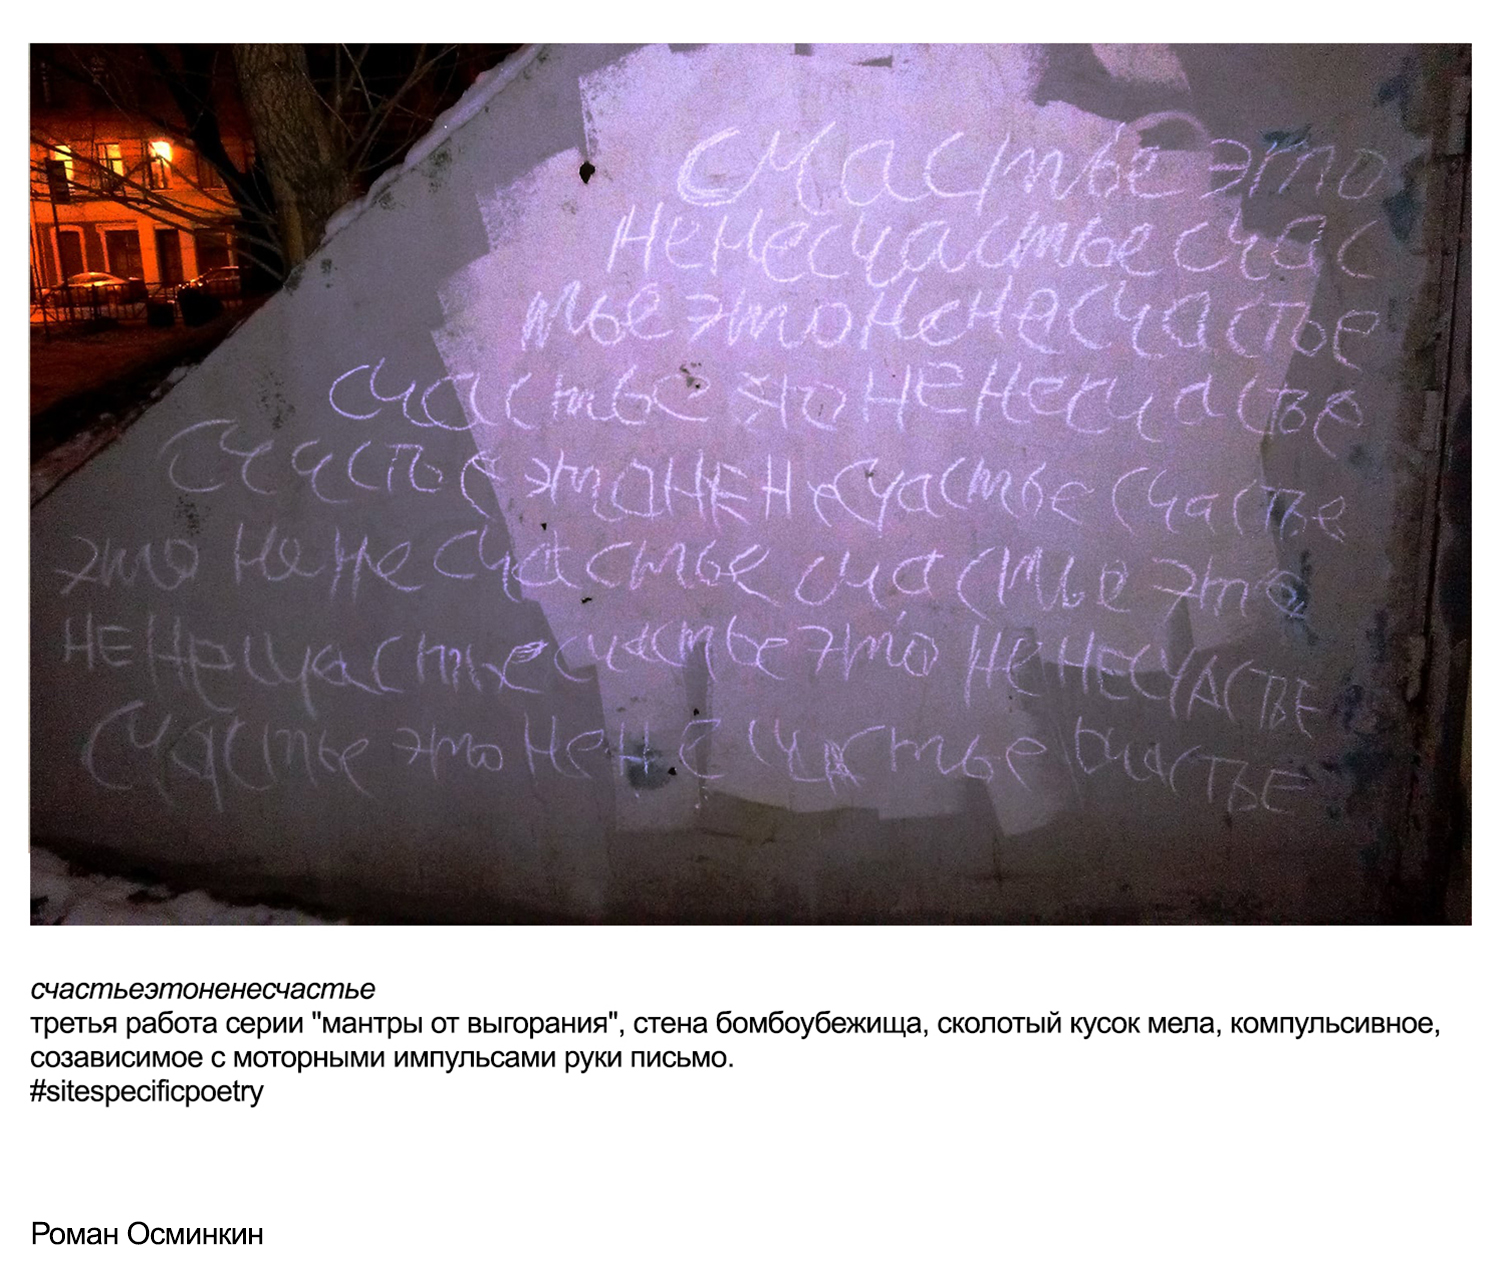 счастье это
ненесчастье счас
тье это ненесчастье
счастье это не несчастье
счастье это не несчастье счастье
это не несчастье счастье это
не несчастье счастье это не несчастье
счастье это не несчастье счастье
счастьеэтоненесчастье
третья работа серии "мантры от выгорания", стена бомбоубежища, сколотый кусок мела, компульсивное,
созависимое с моторными импульсами руки письмо.
#sitespecificpoetry
Роман Осминкин